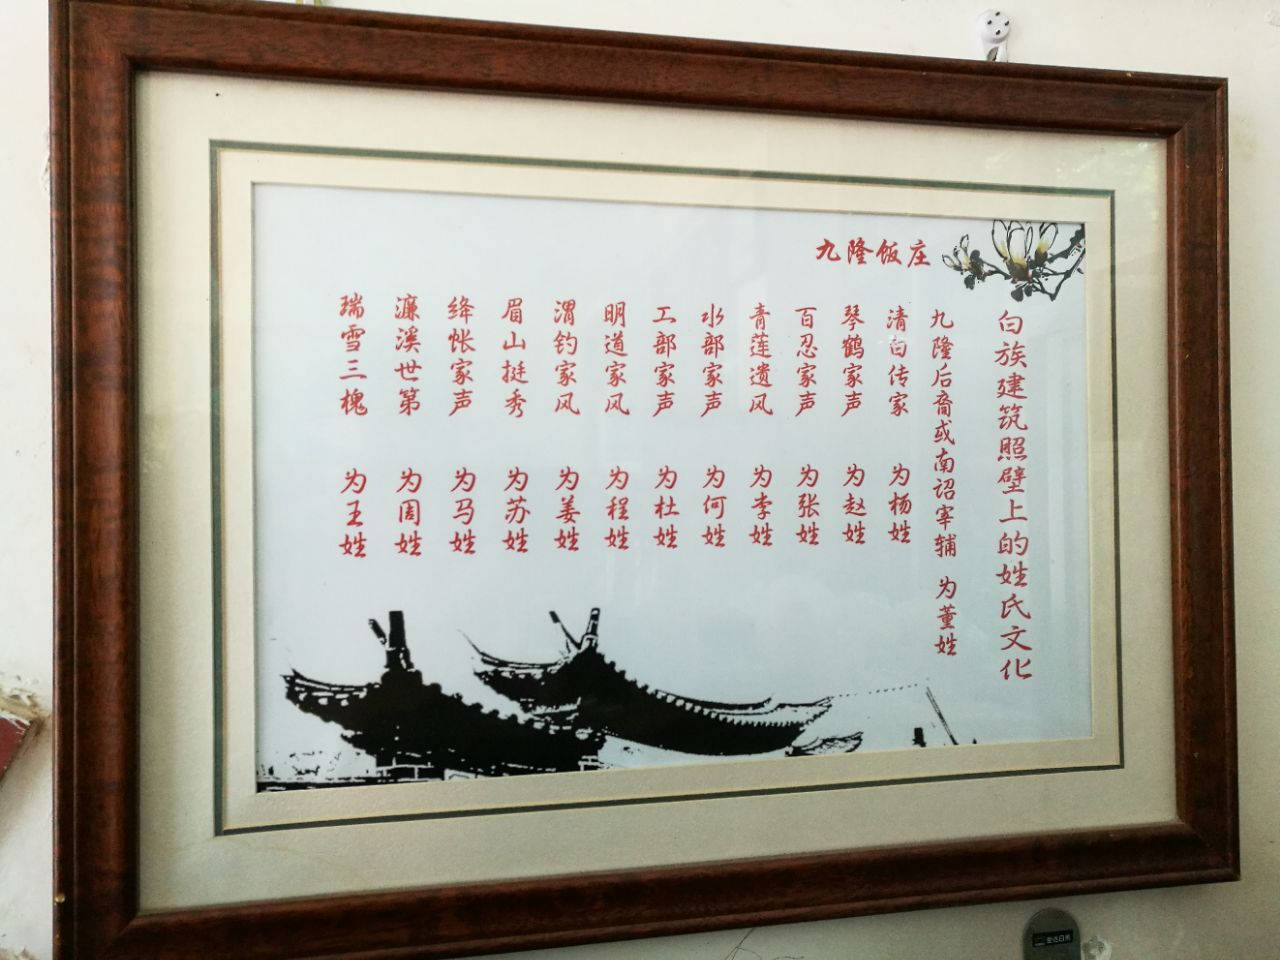 九隆饭庄
白族建筑照壁上的姓氏文化
九隆后裔或南诏宰辅 为董姓
清白传家 为杨姓
琴鹤家声 为赵姓
百忍家声 为张姓
青莲遗风 为李姓
水部家声 为何姓
工部家声 为杜姓
明道家风 为程姓
渭钓家风 为姜姓
眉山挺秀 为苏姓
绛帐家声 为马姓
濂溪世第 为周姓
瑞雪三槐 为王姓